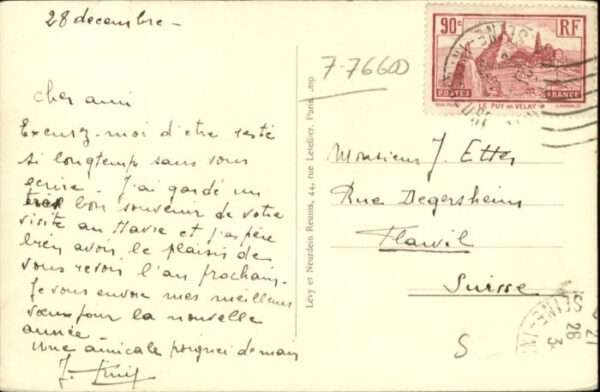 28 decembre -
7-76600
90c
RF
POSTES
FRANCE
LE PUY EN VELAY
cher ami
Excusez-moi d'etre resté
si longtemps sans vous
ecrire. J'ai gardé un
tres bon souvenir de votre
visite au Havre et j'espère
bien avoir le plaisir de
vous revoir l'an prochain.
Je vous envoie mes meilleurs
vœux pour la nouvelle
année.
une amicale poignée de main
J.
Lévy et Neurdein Réunis, 44, rue Letellier, Paris
Monsieur J. Etter
Rue Degersheim
Flawil
Suisse
S
21
28
3
SEINE-IN